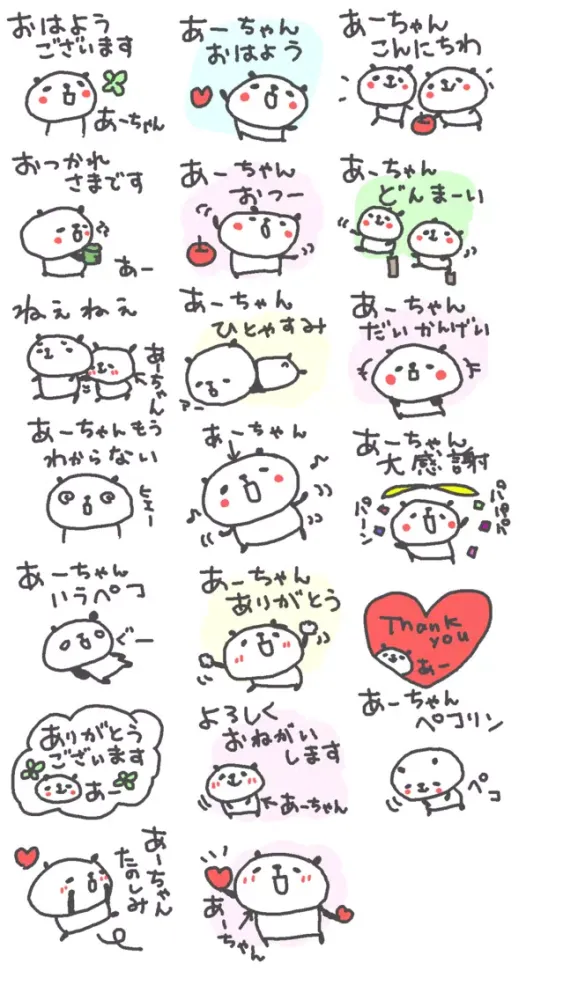 おはよう
ございます
あーちゃん
あーちゃん
おはよう
あーちゃん
こんにちわ
おつかれ
さまです
あー
あーちゃん
おつー
あーちゃん
どんまーい
ねぇねぇ
あーちゃん
あーちゃん
ひとやすみ
アン
あーちゃん
だいかんげい
あーちゃんもう
わからない
ヒェー
あーちゃん
あーちゃん
大感謝
パーン
パパパパ
あーちゃん
いラペコ
ぐー
あーちゃん
ありがとう
Thank
you
あー
ありがとう
ございます
あー
よろしく
おねがい
します
あーちゃん
あーちゃん
ペコリン
ペコ
あーちゃん
たのしみ
あーちゃん